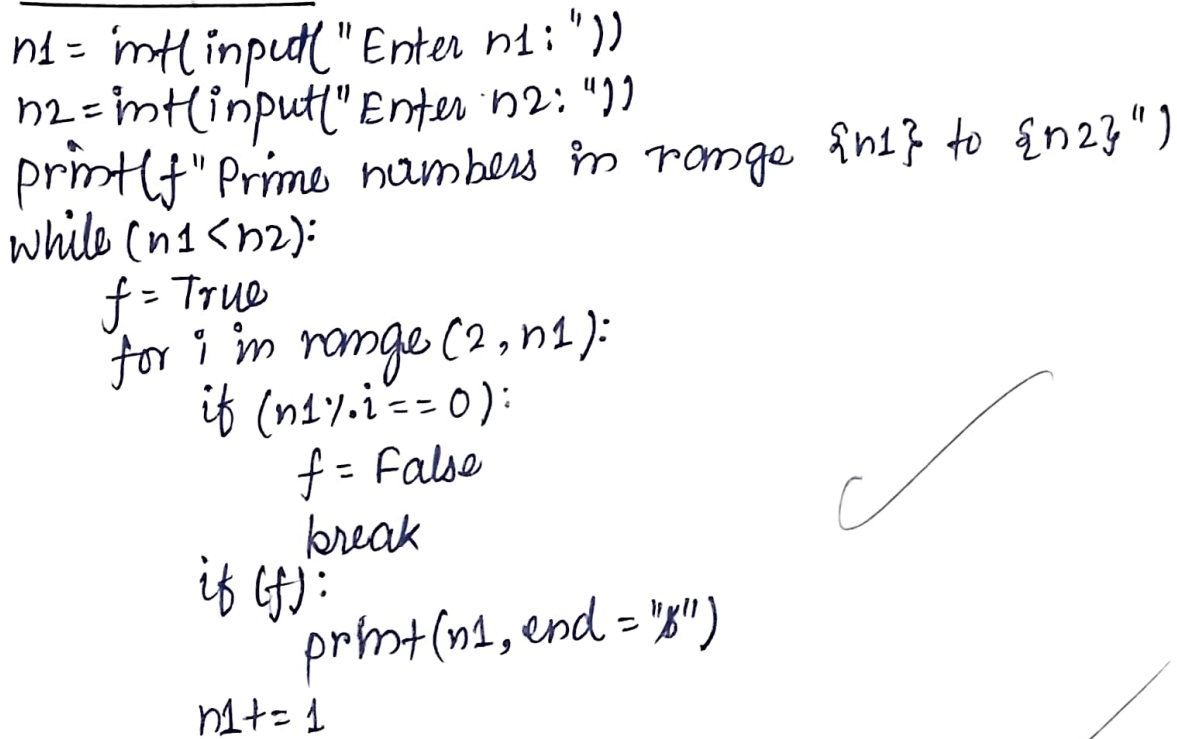 n1 = int(input("Enter n1: "))
n2 = int(input("Enter n2: "))
print(f"Prime numbers in range {n1} to {n2}")
while (n1 < n2):
    f = True
    for i in range (2, n1):
        if (n1 % i == 0):
            f = False
            break
        if (f):
            print(n1, end = "")
        n1 += 1